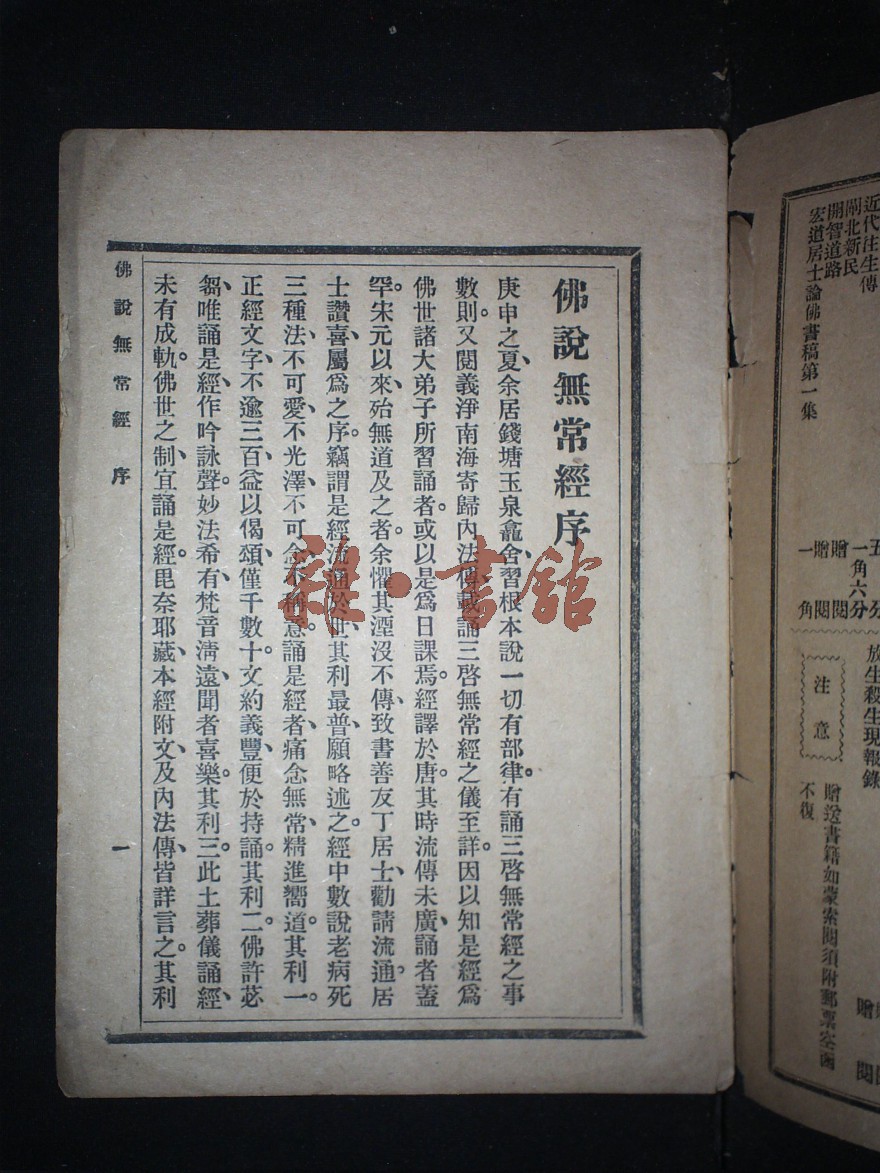 佛說無常經序
庚申之夏、余居錢塘玉泉龕舍、習根本說一切有部律。有誦三啓無常經之事
數則。又閱義淨南海寄歸內法傳、載誦三啓無常經之儀至詳。因以知是經爲
佛世諸大弟子所習誦者。或以是爲日課焉。經譯於唐。其時流傳未廣、誦者蓋
罕。宋元以來、殆無道及之者。余懼其湮沒不傳、致書善友丁居士、勸請流通。居
士讚喜、屬爲之序。竊謂是經流通於世、其利最普、願略述之。經中數說老病死
三種法、不可愛、不光澤、不可念、不稱意。誦是經者、痛念無常、精進嚮道。其利一。
正經文字、不逾三百、益以偈頌、僅千數十。文約義豐、便於持誦。其利二。佛許苾
芻、唯誦是經、作吟詠聲。妙法希有、梵音清遠、聞者喜樂。其利三。此土葬儀誦經、
未有成軌。佛世之制、宜誦是經。毘奈耶藏、本經附文、及內法傳、皆詳言之。其利
佛說無常經 序
一
雜·書館
近代往生傳
閘北新民
開智道路
宏道居士論佛書稿第一集
五分
一角六分
贈閱
贈閱
一角
放生殺生現報錄
注意
贈送書籍如蒙索閱須附郵票空函
不復
贈閱